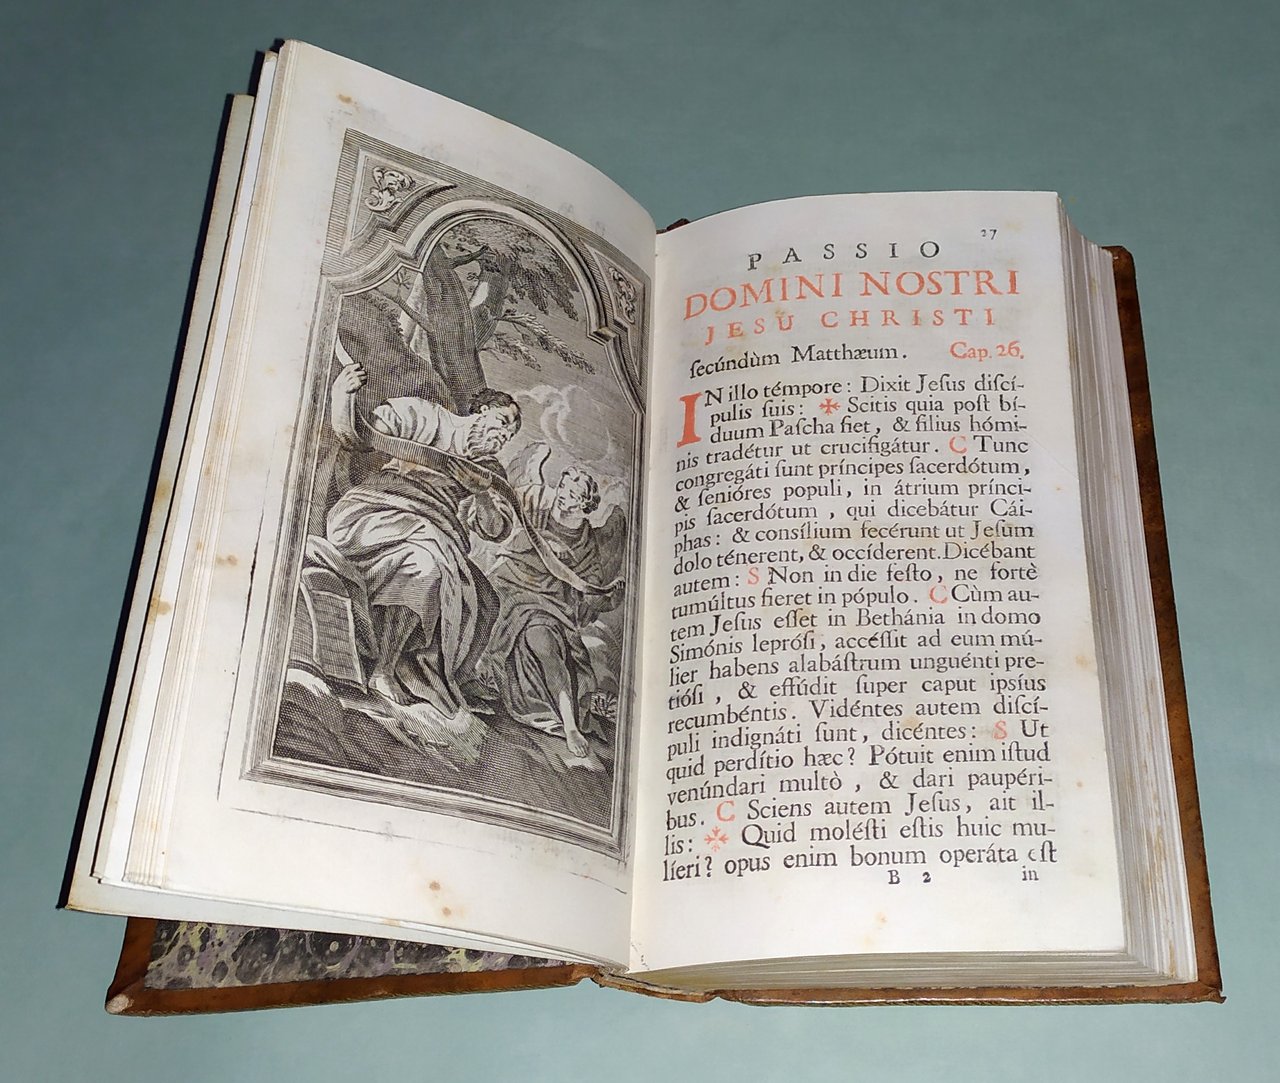 27
PASSIO
DOMINI NOSTRI
JESU CHRISTI
ſecúndùm Matthæum. Cap. 26.
IN illo témpore: Dixit Jeſus diſcí-
pulis ſuis: ✠ Scitis quia poſt bí-
duum Paſcha fiet, & filius hómi-
nis tradétur ut crucifigátur. C Tunc
congregáti ſunt príncipes ſacerdótum,
& ſenióres populi, in átrium prínci-
pis ſacerdótum, qui dicebátur Cái-
phas: & consílium fecérunt ut Jeſum
dolo ténerent, & occíderent. Dicébant
autem: S Non in die feſto, ne fortè
tumúltus fieret in pópulo. C Cùm au-
tem Jeſus eſſet in Bethánia in domo
Simónis lepróſi, accéſſit ad eum mú-
lier habens alabáſtrum unguénti pre-
tióſi, & effúdit ſuper caput ipsíus
recumbéntis. Vidéntes autem diſcí-
puli indignáti ſunt, dicéntes: S Ut
quid perdítio hæc? Pótuit enim iſtud
venúndari multò, & dari paupéri-
bus. C Sciens autem Jeſus, ait il-
lis: ✠ Quid moléſti eſtis huic mu-
líeri? opus enim bonum operáta eſt
B 2 in